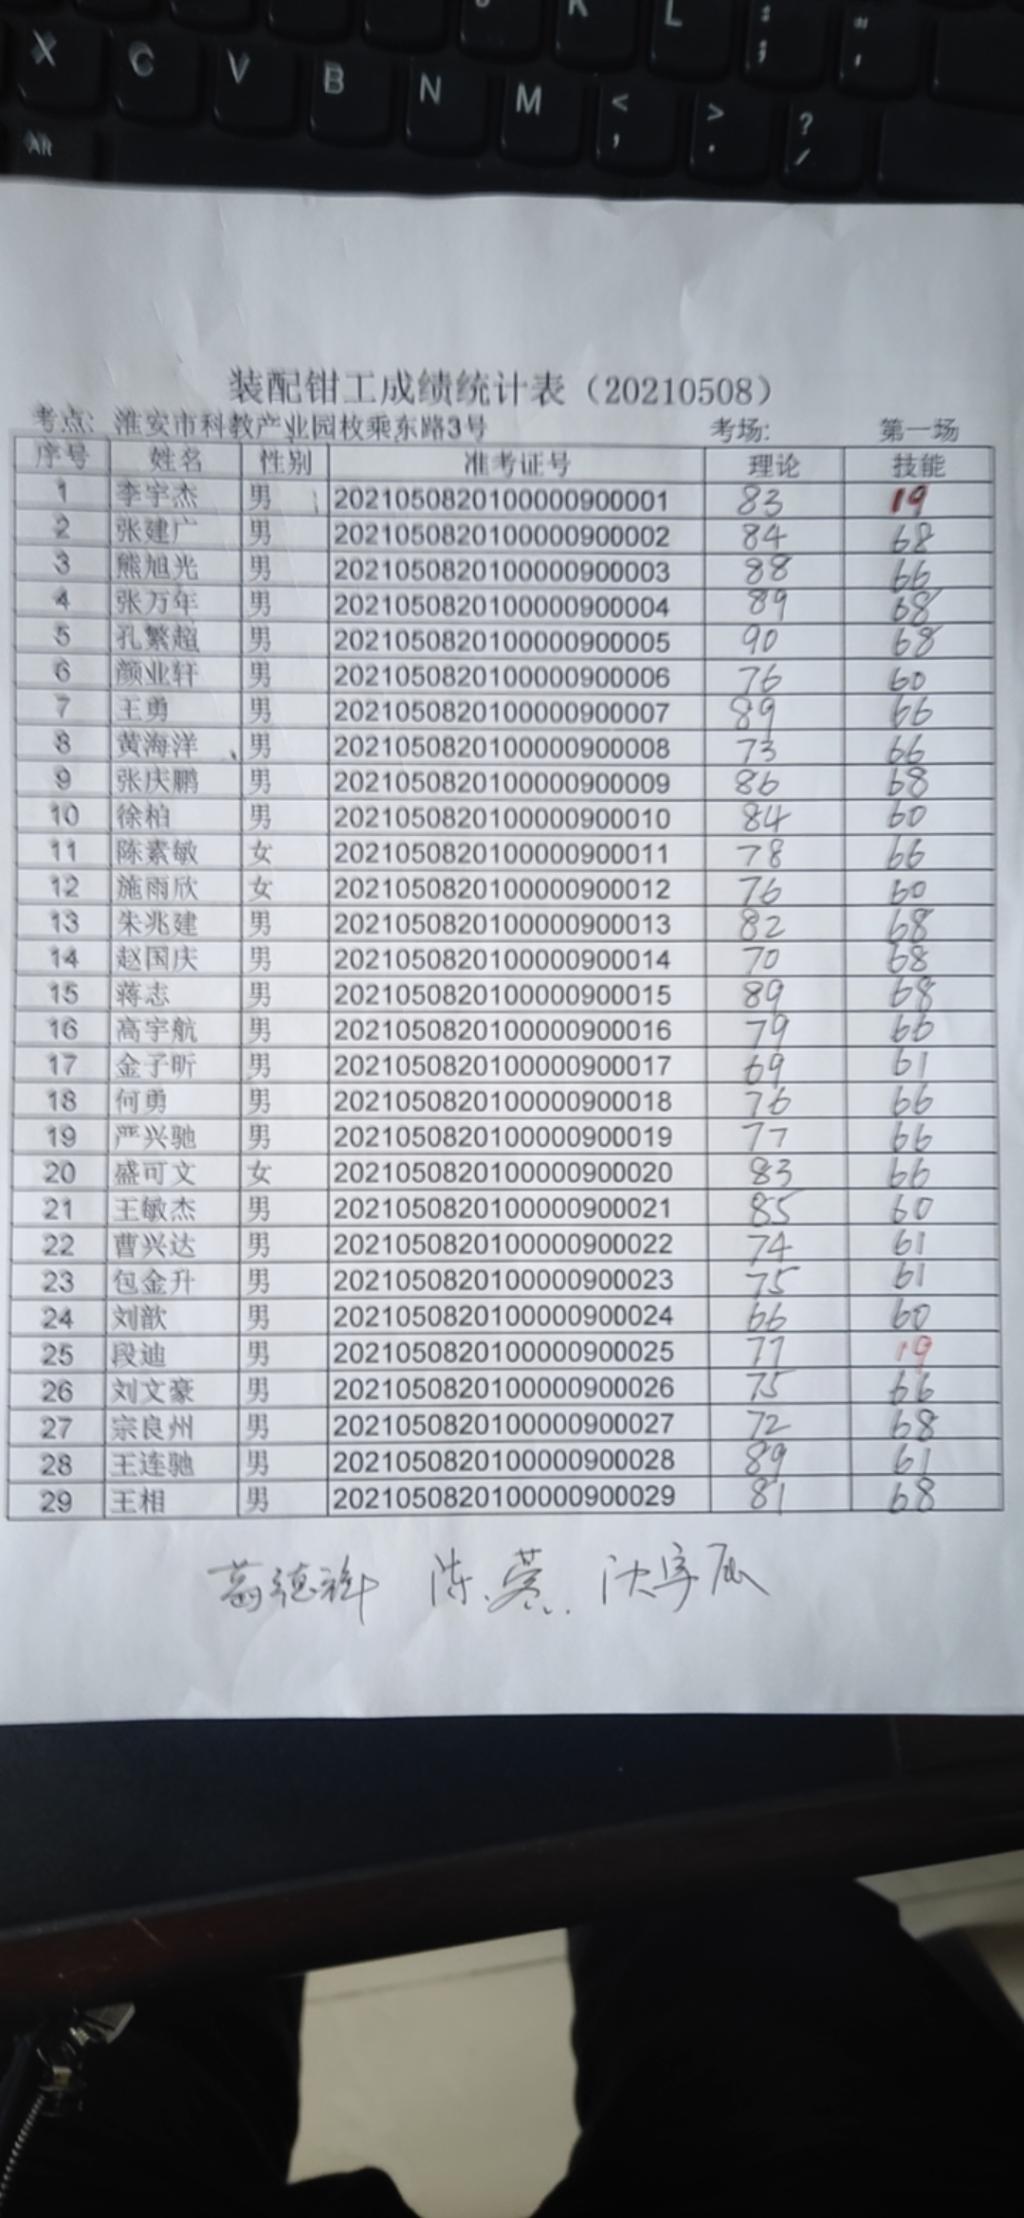 X C V B N M < , > . ? /
K L : ; " '
装配钳工成绩统计表（20210508）
考点: 淮安市科教产业园枚乘东路3号 考场: 第一场
序号 姓名 性别 准考证号 理论 技能
1 李宇杰 男 2021050820100000900001 83 19
2 张建广 男 2021050820100000900002 84 68
3 熊旭光 男 2021050820100000900003 88 66
4 张万年 男 2021050820100000900004 89 68
5 孔繁超 男 2021050820100000900005 90 68
6 颜业轩 男 2021050820100000900006 76 60
7 王勇 男 2021050820100000900007 89 66
8 黄海洋 男 2021050820100000900008 73 66
9 张庆鹏 男 2021050820100000900009 86 68
10 徐柏 男 2021050820100000900010 84 60
11 陈素敏 女 2021050820100000900011 78 66
12 施雨欣 女 2021050820100000900012 76 60
13 朱兆建 男 2021050820100000900013 82 68
14 赵国庆 男 2021050820100000900014 70 68
15 蒋志 男 2021050820100000900015 89 68
16 高宇航 男 2021050820100000900016 79 66
17 金子昕 男 2021050820100000900017 69 61
18 何勇 男 2021050820100000900018 76 66
19 严兴驰 男 2021050820100000900019 77 66
20 盛可文 女 2021050820100000900020 83 66
21 王敏杰 男 2021050820100000900021 85 60
22 曹兴达 男 2021050820100000900022 74 61
23 包金升 男 2021050820100000900023 75 61
24 刘歆 男 2021050820100000900024 66 60
25 段迪 男 2021050820100000900025 77 19
26 刘文豪 男 2021050820100000900026 75 66
27 宗良州 男 2021050820100000900027 72 68
28 王连驰 男 2021050820100000900028 89 61
29 王相 男 2021050820100000900029 81 68